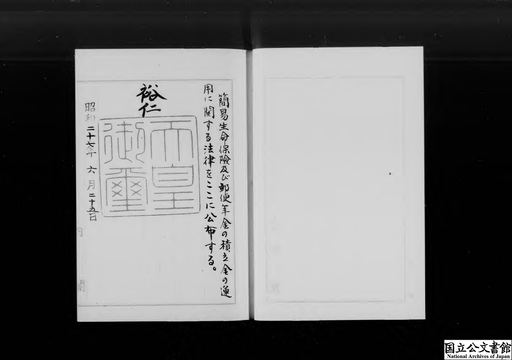 簡易生命保険及び郵便年金の積立金の運
用に関する法律をここに公布する。
裕仁
天皇
御璽
昭和二十七年六月二十五日
国立公文書館
National Archives of Japan